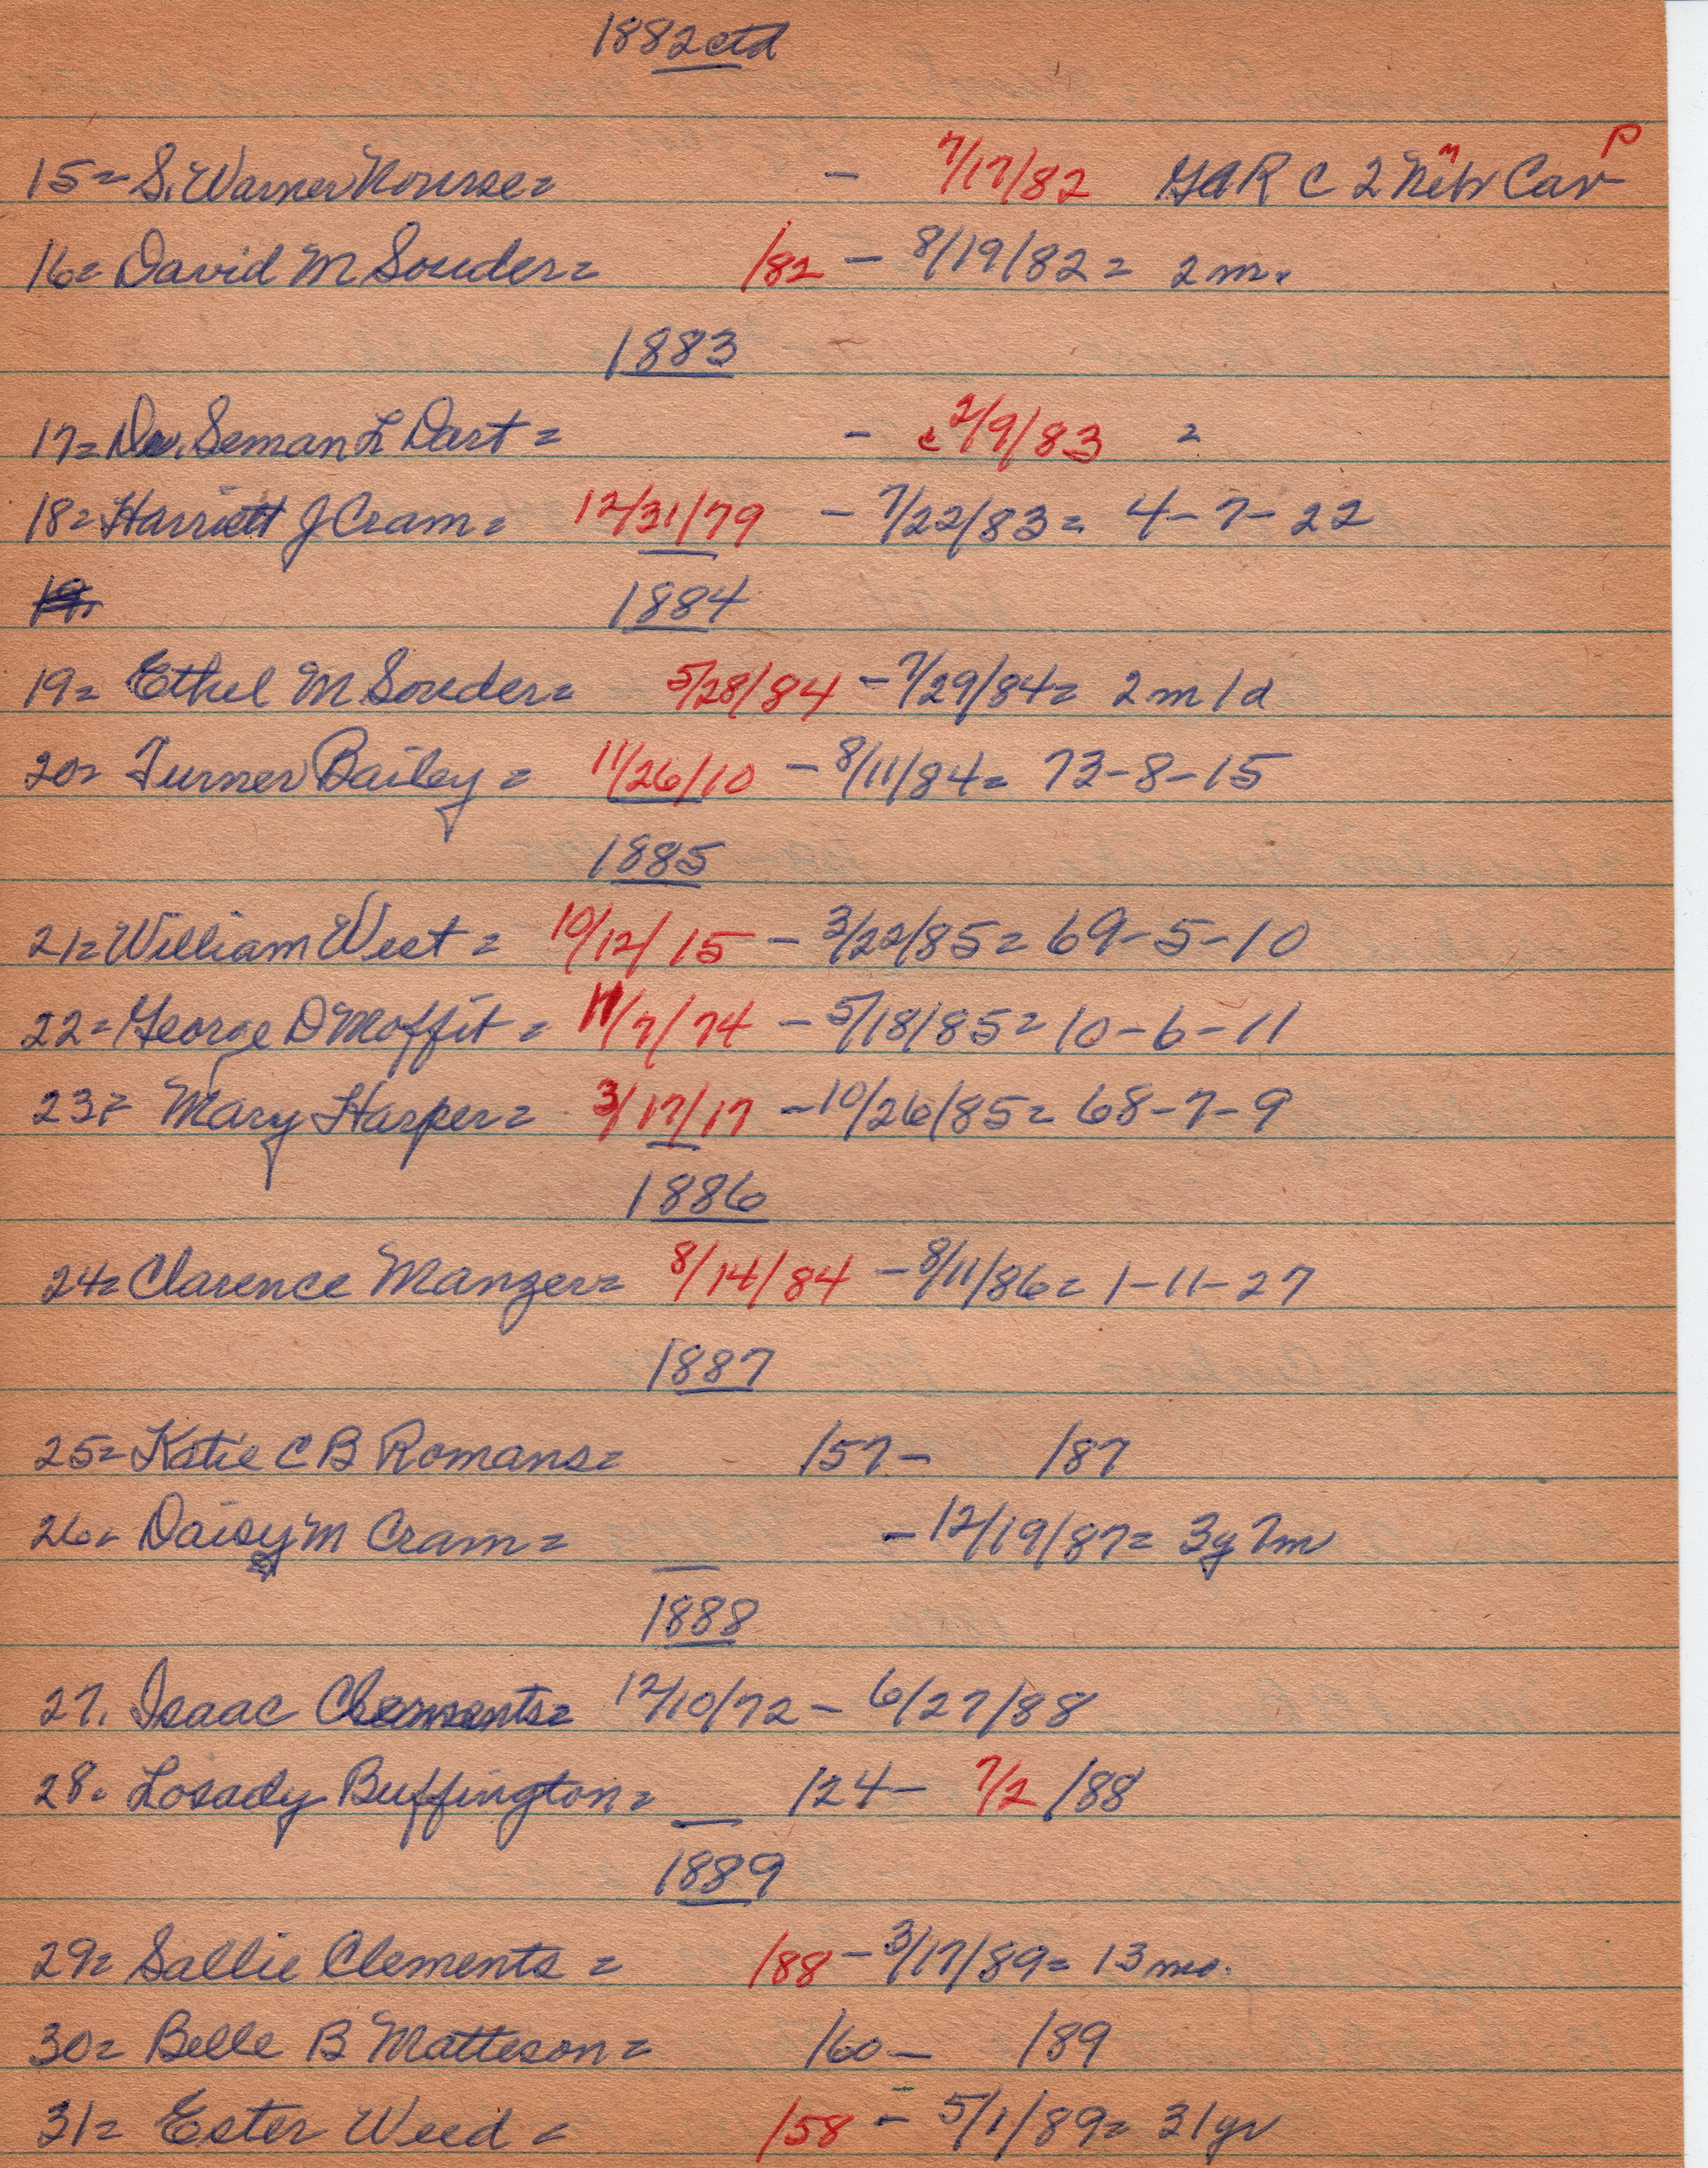 1882 ctd
15= S. Warner Nourse= - 7/17/82 GAR C 2 Neb Cav
16= David M Souder= /82 - 8/19/82= 2 m.
1883
17= Dr. Seman L Dart= - c 2/9/83 =
18= Harriett J Cram= 12/31/79 - 7/22/83= 4-7-22
19.
1884
19= Ethel M Souder= 5/28/84 - 7/29/84= 2 m 1 d
20= Turner Bailey= 11/26/10 - 8/11/84= 73-8-15
1885
21= William West= 10/12/15 - 3/22/85= 69-5-10
22= George D Moffit= 11/7/74 - 5/18/85= 10-6-11
23= Mary Harper= 3/17/17 - 10/26/85= 68-7-9
1886
24= Clarence Manzer= 8/14/84 - 8/11/86= 1-11-27
1887
25= Katie C B Romans= /57 - /87
26= Daisy M Cram= - 12/19/87= 3y 7m
1888
27. Isaac Clements= 12/10/72 - 6/27/88
28. Losady Buffington= /24 - 7/2/88
1889
29= Sallie Clements= /88 - 3/17/89= 13 mo.
30= Belle B Matteson= /60 - /89
31= Ester Weed= /58 - 5/1/89= 31yr